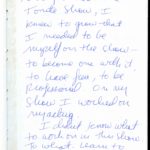 Tonda Show, I
know to grow that
I needed to be
myself on the show -
to become one with it
to have fun, to be
Professional. On my
Show I worked on
I didn't know what
to work on in this show
to what. Learn to